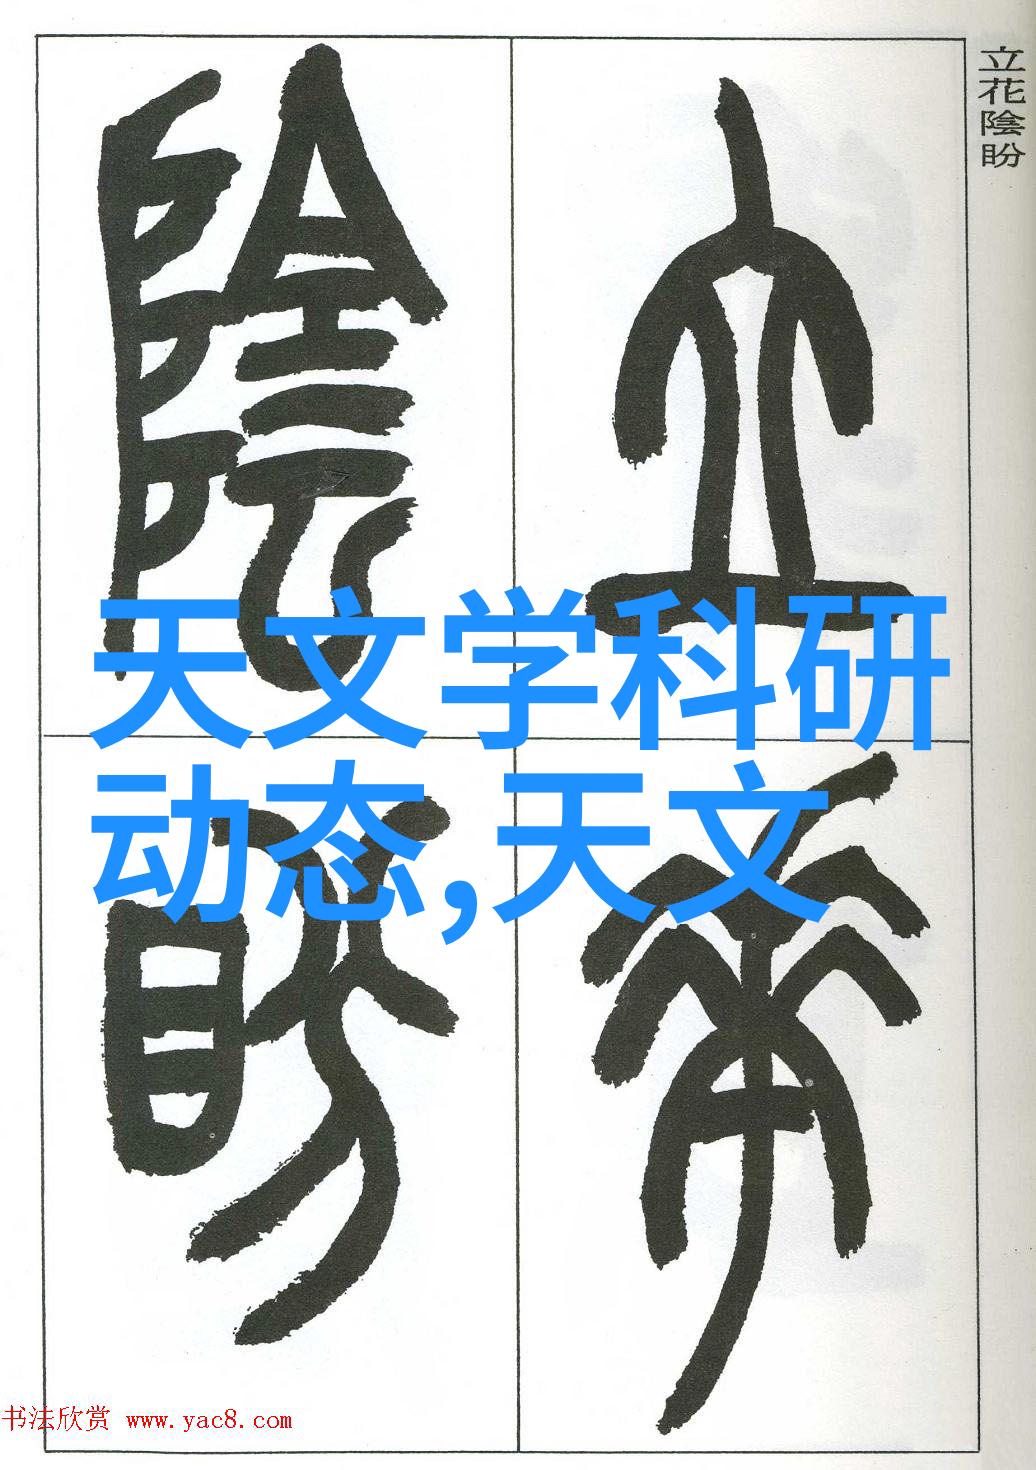 立花陰盼
立
花
陰
盼
天文学科研
动态,天文
书法欣赏 www.yac8.com